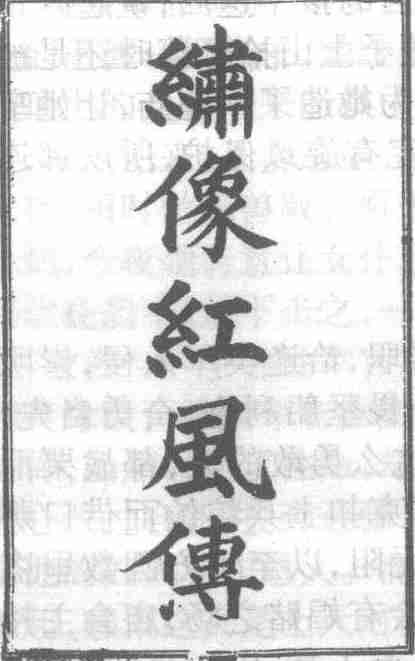 繡像紅風傳